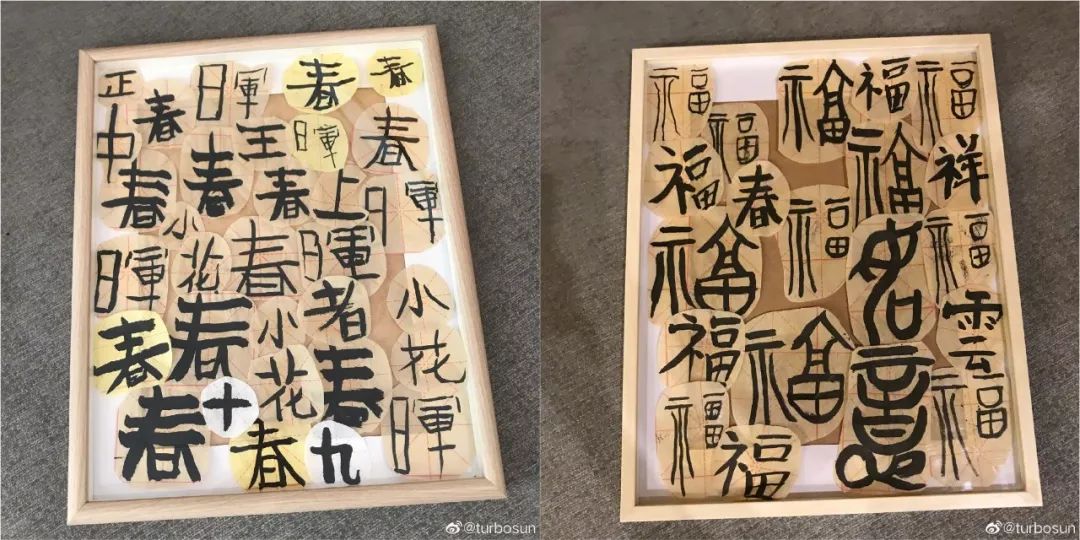 正 暉 春 春
中 春 王 暉 春
春 春 春 上 暉
小花
暉 春 暉
春 春 小花 者 小花
春 十 春 九 春 暉
@turbosun
福 福 福 福
福
福 春 福 福 祥
福 如意 福
福 福 雲
福 福 福
@turbosun